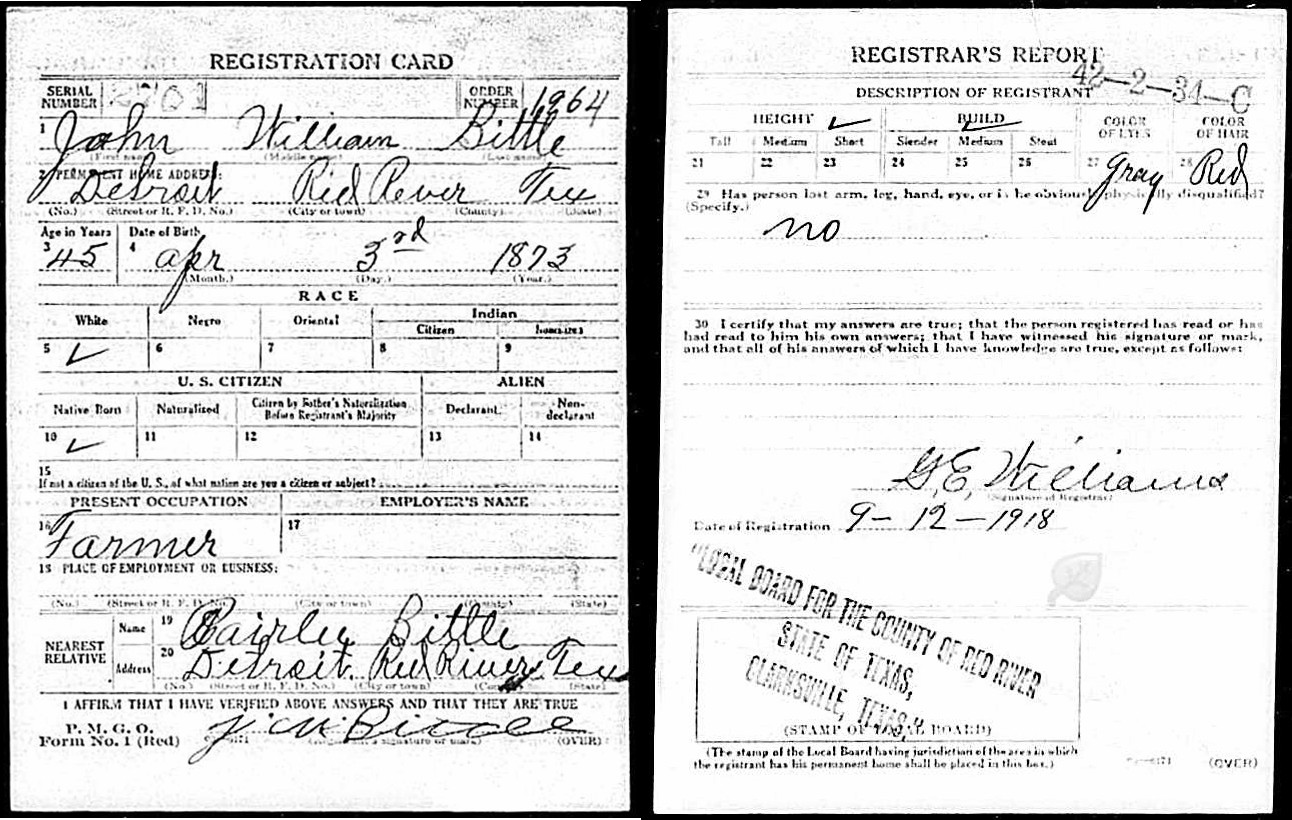 REGISTRATION CARD
SERIAL NUMBER 2701 ORDER NUMBER 1964
1 John William Bittle
(First name) (Middle name) (Last name)
2 PERMANENT HOME ADDRESS:
Detroit Red River Tex
(No.) (Street or R. F. D. No.) (City or town) (County) (State)
Age in Years Date of Birth
3 45 4 apr 3rd 1873
(Month.) (Day.) (Year.)
RACE
White Negro Oriental Indian
Citizen
5 ✓ 6 7 8 9
U. S. CITIZEN ALIEN
Native Born Naturalized Citizen by Father's Naturalization Before Registrant's Majority Declarant Non-declarant
10 ✓ 11 12 13 14
15
If not a citizen of the U. S., of what nation are you a citizen or subject?
PRESENT OCCUPATION EMPLOYER'S NAME
16 Farmer 17
18 PLACE OF EMPLOYMENT OR BUSINESS:
(No.) (Street or R. F. D. No.) (City or town) (County) (State)
NEAREST RELATIVE Name 19 Bittle
Address 20 Detroit Red River Tex
(No.) (Street or R. F. D. No.) (City or town) (County) (State)
I AFFIRM THAT I HAVE VERIFIED ABOVE ANSWERS AND THAT THEY ARE TRUE
P. M. G. O.
Form No. 1 (Red) J W Bittle (OVER)
REGISTRAR'S REPORT
42-2-34-C
DESCRIPTION OF REGISTRANT
HEIGHT ✓ BUILD ✓ COLOR OF EYES COLOR OF HAIR
Tall Medium Short Slender Medium Stout
21 22 23 24 25 26 27 Gray 28 Red
29 Has person lost arm, leg, hand, eye, or is he obviously physically disqualified?
(Specify.)
no
30 I certify that my answers are true; that the person registered has read or has
had read to him his own answers; that I have witnessed his signature or mark,
and that all of his answers of which I have knowledge are true, except as follows:
G. E. Williams
(Signature of Registrar)
Date of Registration 9-12-1918
"LOCAL BOARD FOR THE COUNTY OF RED RIVER
STATE OF TEXAS,
CLARKSVILLE, TEXAS,"
(STAMP OF LOCAL BOARD)
(The stamp of the Local Board having jurisdiction of the area in which
the registrant has his permanent home shall be placed in this box.)
(OVER)